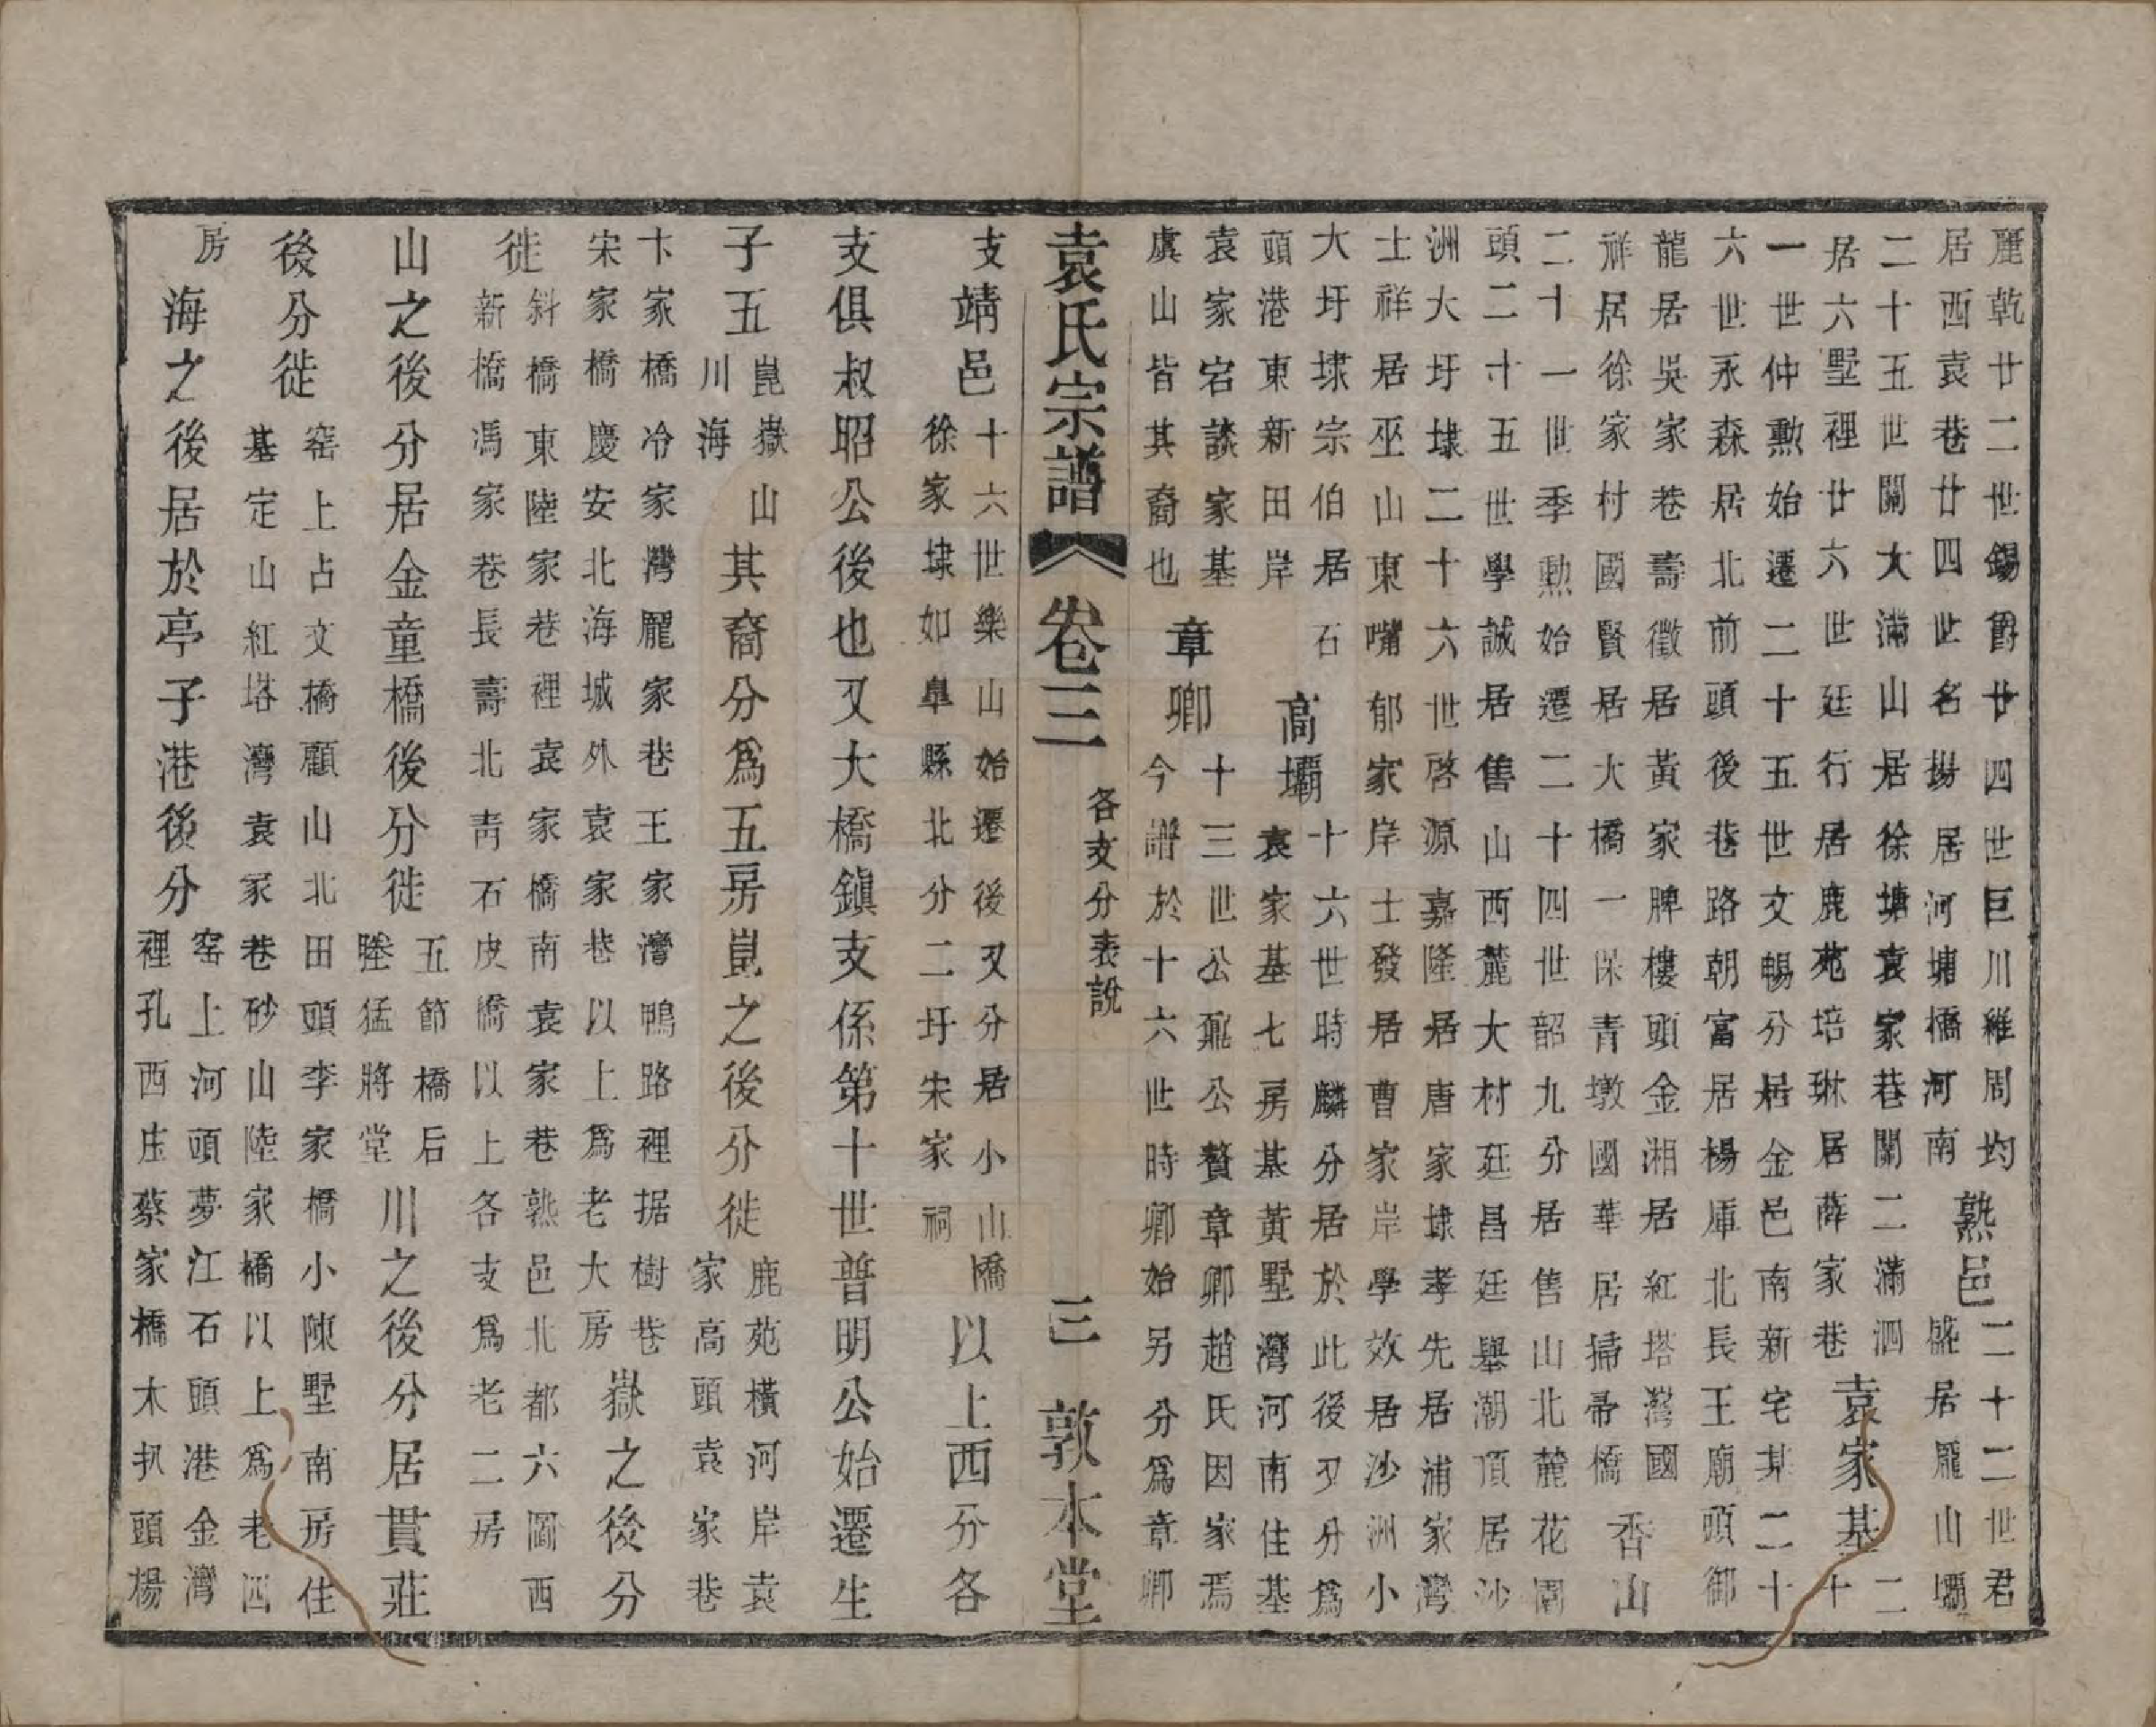 麗乾廿二世錫爵廿四世巨川維周均
居西袁巷廿四世名揚居河塘橋河南
熟邑
二十二世君
盛居龎山壩
二十五世關大滿山居徐塘袁家巷關二滿泗
居六墅裡廿六世廷行居鹿苑培琳居薛家巷
袁家基
二
十
一世仲勲始遷二十五世文暢分居金邑南新宅基二十
六世永森居北前頭後巷路朝富居楊厙北長王廟頭御
龍居吳家巷壽徵居黃家脾樓頭金湘居紅塔灣國
祥居徐家村國賢居大橋一保青墩國華居掃帚橋
香山
二十一世季勲始遷二十四世韶九分居售山北麓花園
頭二十五世學誠居售山西麓大村廷昌廷舉潮頂居沙
洲大圩埭二十六世啓源嘉隆居唐家埭孝先居浦家灣
士祥居巫山東嘴郁家岸士發居曹家岸學效居沙洲小
大圩埭宗伯居石
頭港東新田岸
高壩
十六世時麟分居於此後又分爲
袁家基七房基黃墅灣河南住基
袁家宕談家基
虞山皆其裔也
章卿
十三世公鼐公贅章卿趙氏因家焉
今譜於十六世時卿始另分爲章卿
袁氏宗譜
卷三
各支分表說
三
敦本堂
支
靖邑
十六世樂山始遷後又分居小山
徐家埭如臯縣北分二圩宋家祠
橋
以上西分各
支俱叔昭公後也又大橋鎭支係第十世普明公始遷生
子五
崑嶽山
川海
其裔分爲五房崑之後分徙
鹿苑橫河岸袁
家高頭袁家巷
卞家橋冷家灣龎家巷王家灣鴨路裡据樹巷
宋家橋慶安北海城外袁家巷以上爲老大房
嶽之後分
徙
斜橋東陸家巷裡袁家橋南袁家巷熟邑北都六圖西
新橋馮家巷長壽北靑石皮橋以上各支爲老二房
山之後分居金童橋後分徙
五節橋后
塍猛將堂
川之後分居貫莊
後分徙
窑上占文橋顧山北田頭李家橋小陳墅南房住
基定山紅塔灣袁家巷砂山陸家橋以上爲老四
房
海之後居於亭子港後分
窑上河頭夢江石頭港金灣
裡孔西庄蔡家橋木扒頭楊